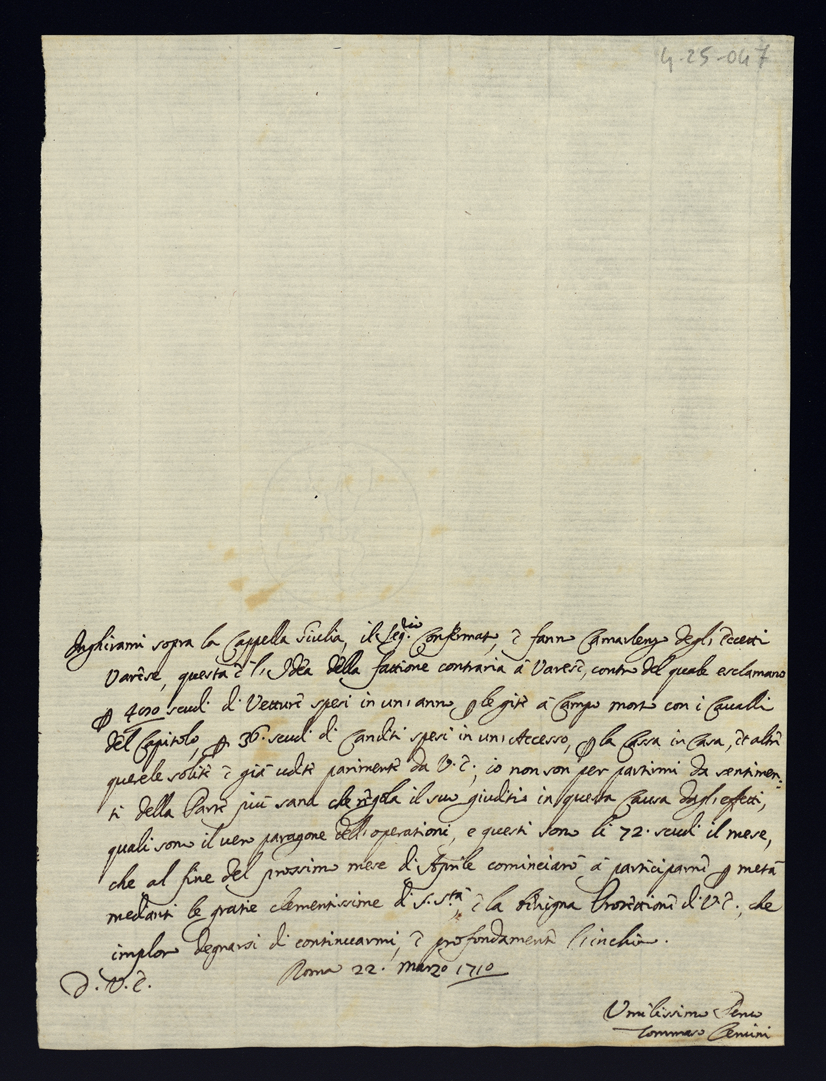 4.25-047
Inghirami sopra la Cappella Giulia, il Confermato, è fanno Camarlengo degli eccetti
Varese, questa è l'Idea della fattione contraria à Varese, contro del quale esclamano
p 4000 scudi di Vetture spesi in un'anno p le gite à Campo morto con i Cavalli
del Capitolo, p 36. scudi di Canditi spesi in un'Accesso, p la Cassa in Casa, et altre
querele solite è già udite parimente da V. E.; io non son per partirmi da sentimen=
ti della Parte più sana che regola il suo giuditio in questa Causa dagli effetti,
quali sono il vero paragone dell'operationi, e questi sono li 72. scudi il mese,
che al fine del prossimo mese di Aprile cominciarò à participarne p metà
medianti le gratie clementissime di S. Stà è la benigna Protettione di V. E., che
imploro degnarsi di continuarmi, è profondamente l'inchino.
D. V. E. Roma 22. Marzo 1710
Umilissimo Servo
Tommaso